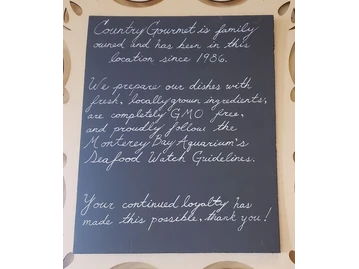 Country Gourmet is family
owned and has been in this
location since 1986.
We prepare our dishes with
fresh, locally grown ingredients,
are completely GMO free,
and proudly follow the
Monterey Bay Aquarium's
Seafood Watch Guidelines.
Your continued loyalty has
made this possible, thank you!